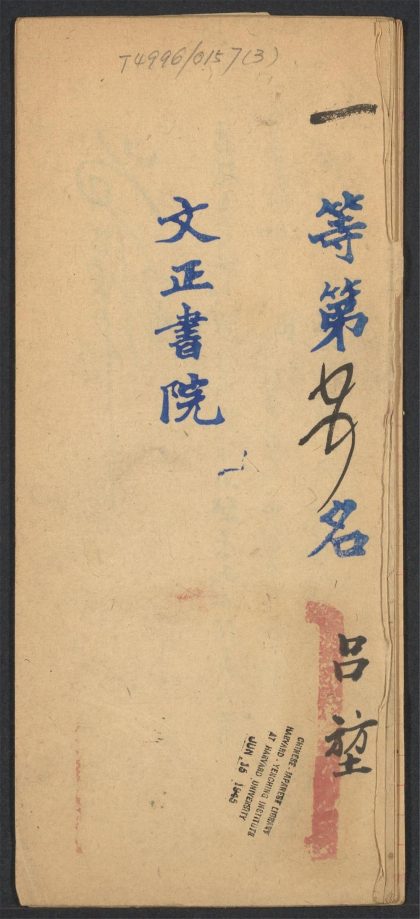 T4996/0157(3)
一等第名 呂堃
文正書院
CHINESE-JAPANESE LIBRARY
HARVARD-YENCHING INSTITUTE
AT HARVARD UNIVERSITY
JUN 15